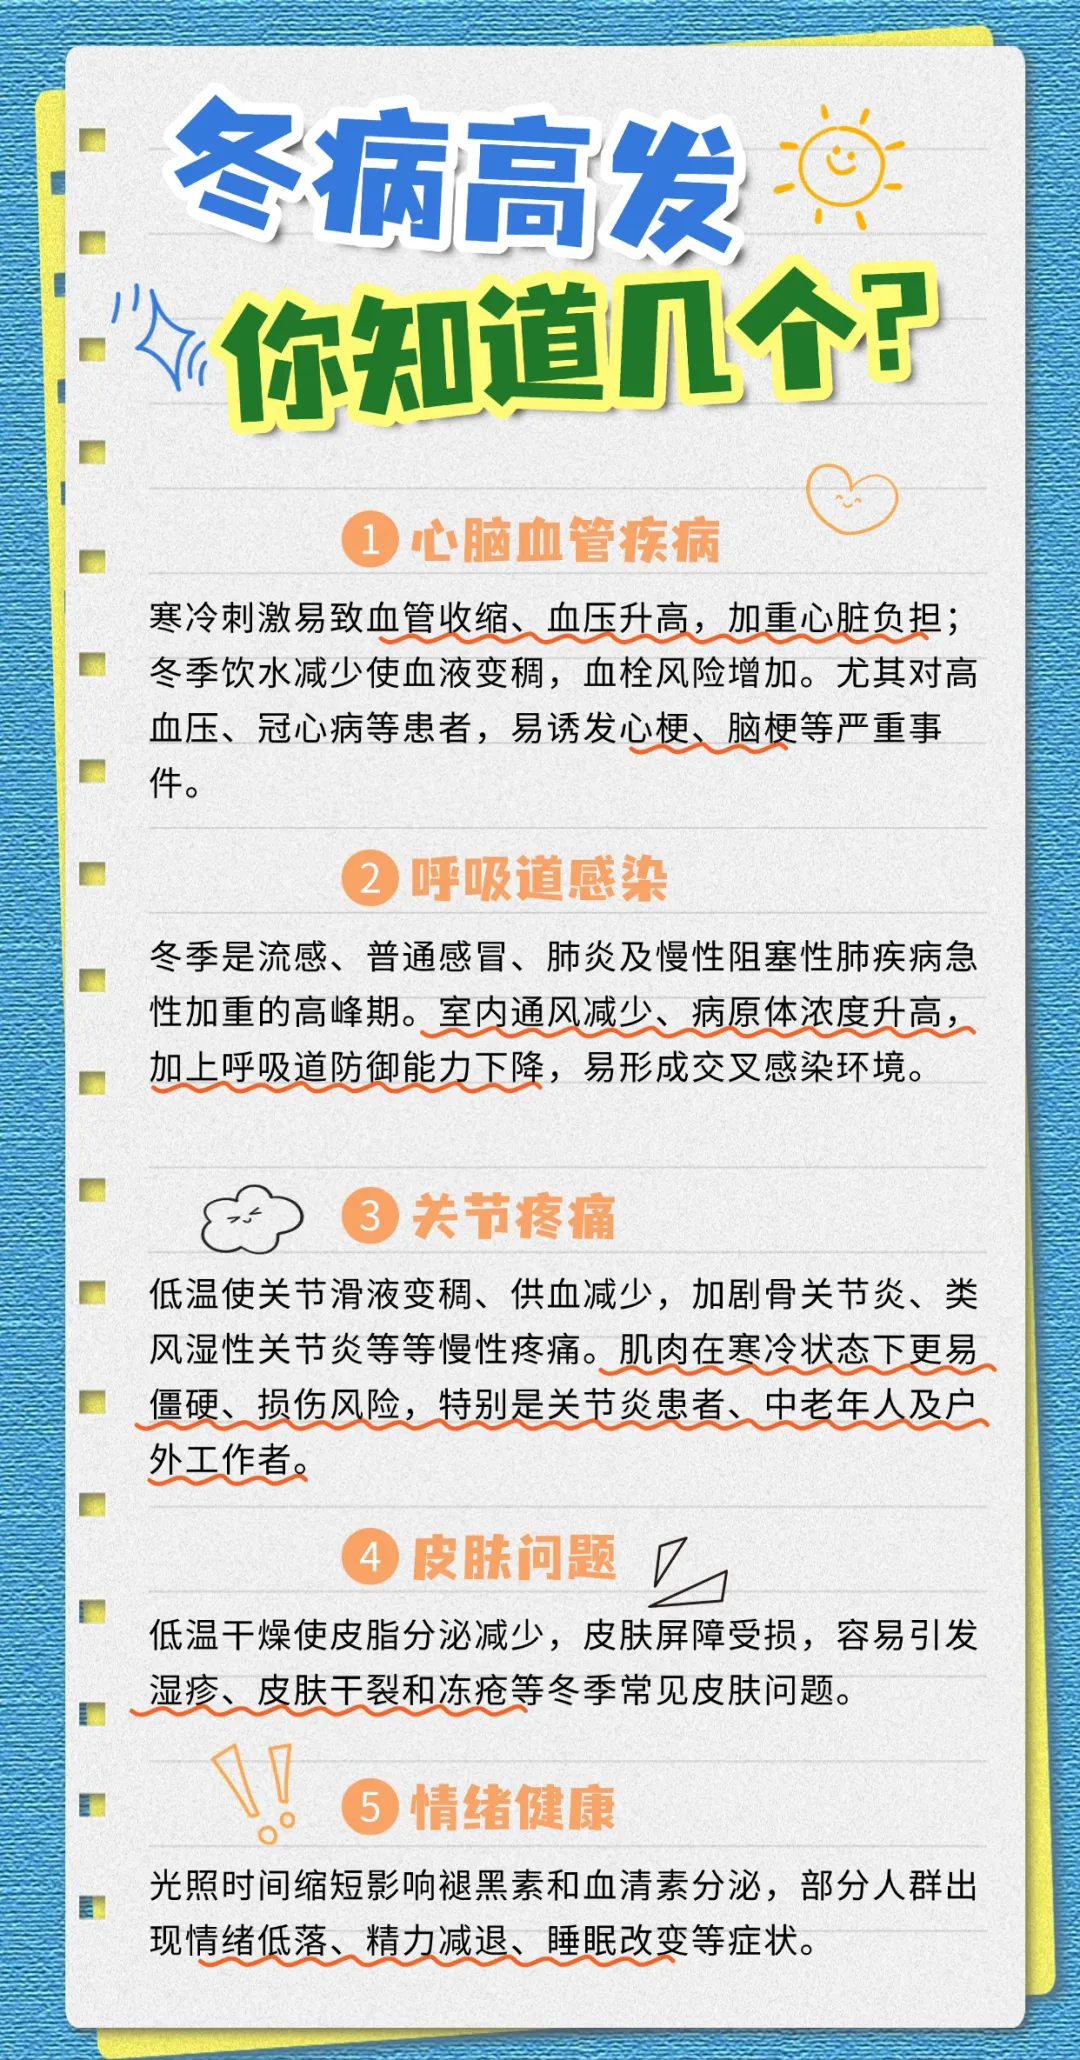 冬病高发
你知道几个?
1 心脑血管疾病
寒冷刺激易致血管收缩、血压升高，加重心脏负担；
冬季饮水减少使血液变稠，血栓风险增加。尤其对高
血压、冠心病等患者，易诱发心梗、脑梗等严重事
件。
2 呼吸道感染
冬季是流感、普通感冒、肺炎及慢性阻塞性肺疾病急
性加重的高峰期。室内通风减少、病原体浓度升高，
加上呼吸道防御能力下降，易形成交叉感染环境。
3 关节疼痛
低温使关节滑液变稠、供血减少，加剧骨关节炎、类
风湿性关节炎等等慢性疼痛。肌肉在寒冷状态下更易
僵硬、损伤风险，特别是关节炎患者、中老年人及户
外工作者。
4 皮肤问题
低温干燥使皮脂分泌减少，皮肤屏障受损，容易引发
湿疹、皮肤干裂和冻疮等冬季常见皮肤问题。
5 情绪健康
光照时间缩短影响褪黑素和血清素分泌，部分人群出
现情绪低落、精力减退、睡眠改变等症状。